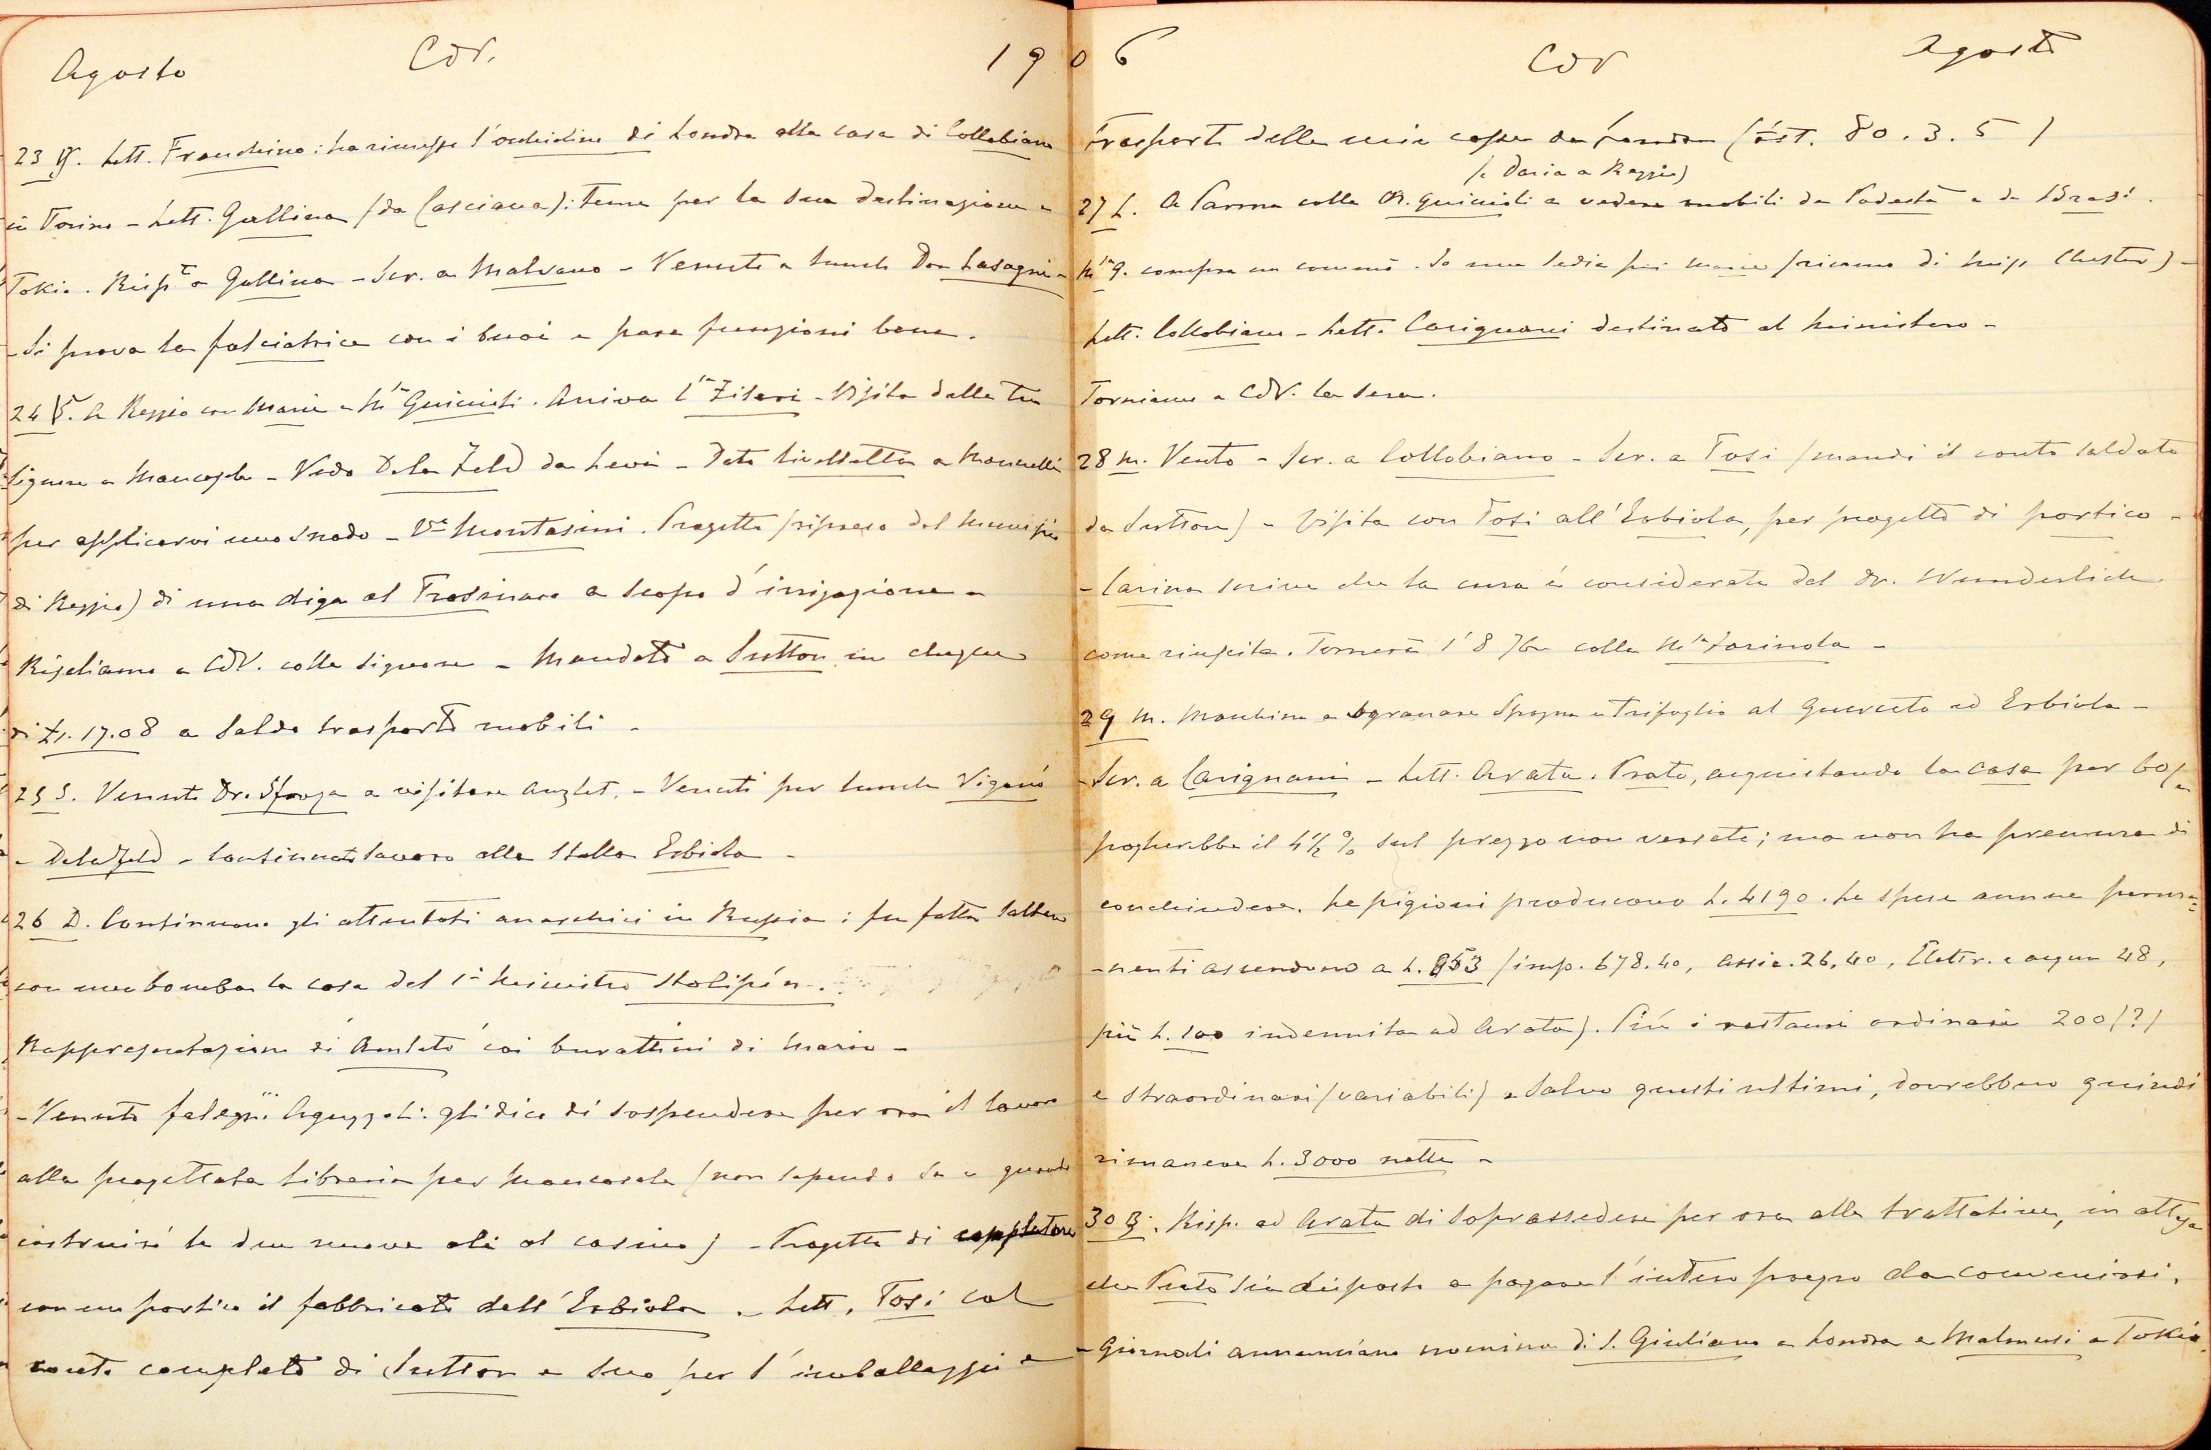 Agosto CdV. 1906
23 G. Lett. Franchino: ha rimesso l'orchidine di Londra alla casa di Collobiano
in Torino - Lett. Gallina (da Casciana): teme per la sua destinazione a
Tokio. Rispto a Gallina - Scr. a Malvano - Venuto a lunch Don Lasagni -
- Si prova la falciatrice con i buoi e pare funzioni bene.
24 V. A Reggio con Marie e Mse Guiccioli. Arriva Csa Zileri - Visita delle tre
Signore a Mancasale - Vedo Dela Feld da Levi - Dato livelletta a
per applicarvi uno snodo - Vto Montasini. Progetto (ripreso dal Municipio
di Reggio) di una diga al Tresinaro a scopo d'irrigazione -
Risaliamo a CdV. colle Signore - Mandato a Sutton in chèque
di £s. 17.08 a saldo trasporto mobili -
25 S. Venuto Dr. Sforza a visitare - Venuti per lunch Viganò
e Delafeld - Continuato lavoro alla stalla Erbiola -
26 D. Continuano gli attentati anarchici in Russia: fu fatta saltare
con una bomba la casa del 1° Ministro Stolipin -
Rappresentazione di 'Amleto' coi burattini di Mario -
- Venuto falegne Aguzzoli: gli dico di sospendere per ora il lavoro
alla progettata libreria per Mancasale (non sapendo se e quando
costruirò le due nuove ali al casino) - Progetto di completare
con un portico il fabbricato dell'Erbiola - Lett. Tosi col
conto completo di Sutton e suo per l'imballaggio e
CdV Agosto
trasporto delle mie casse da Londra (£st. 80.3.5)
(e Daria a Reggio)
27 L. A Parma colla M. Guiccioli a vedere mobili da Podestà e da Brasi.
Msa G. compra un commò. Io una sedia per Marie (ricamo di Miss Chester) -
Lett. Collobiano - Lett. Carignani destinato al Ministero -
Torniamo a CdV. la sera.
28 M. Vento - Scr. a Collobiano - Scr. a Tosi (mandi il conto saldato
da Sutton) - Visita con Tosi all'Erbiola, per progetto di portico -
- Carina scrive che la cura è considerata dal Dr. Wunderlich
come riuscita. Tornerà l'8 7bre colla Msa Farinola -
29 M. Macchina a sgranare Spagna e Trifoglio al Querceto ed Erbiola -
- Scr. a Carignani - Lett. Arata. Prato, acquistando la casa per 60/m
pagherebbe il 4 1/2 % sul prezzo non versato; ma non ha premura di
conchiudere. Le pigioni producono L. 4190. Le spese annue perma=
-nenti ascendono a L. 853 (imp. 678.40, assic. 26,40, Elettr. e acqua 48,
più L. 100 indennità ad Arata). Più i restauri ordinari 200 (?)
e straordinari (variabili) - Salvo questi ultimi, dovrebbero quindi
rimanere L. 3000 nette -
30 G. Risp. ad Arata di soprassedere per ora alle trattative, in attesa
che Prato sia disposto a pagare l'intero prezzo da convenirsi.
- Giornali annunciano nomina di S. Giuliano a Londra e Malmusi a Tokio.